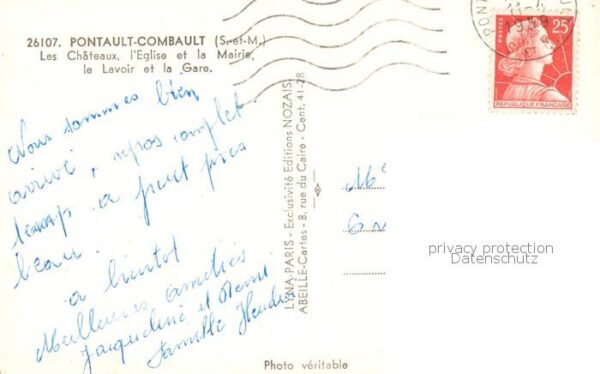 26107. PONTAULT-COMBAULT (S.-et-M.)
Les Châteaux, l'Eglise et la Mairie,
le Lavoir et la Gare.
Nous sommes bien
arrivé, repos complet
temps a peut près
beau.
a bientot
Meilleures amitiés
Jacqueline et Rémi
famille
LYNA-PARIS - Exclusivité Editions NOZAIS
ABEILLE-Cartes - 8, rue du Caire - Cent. 41-28
Photo véritable
POSTES
25F
REPUBLIQUE FRANÇAISE
PON
privacy protection
Datenschutz